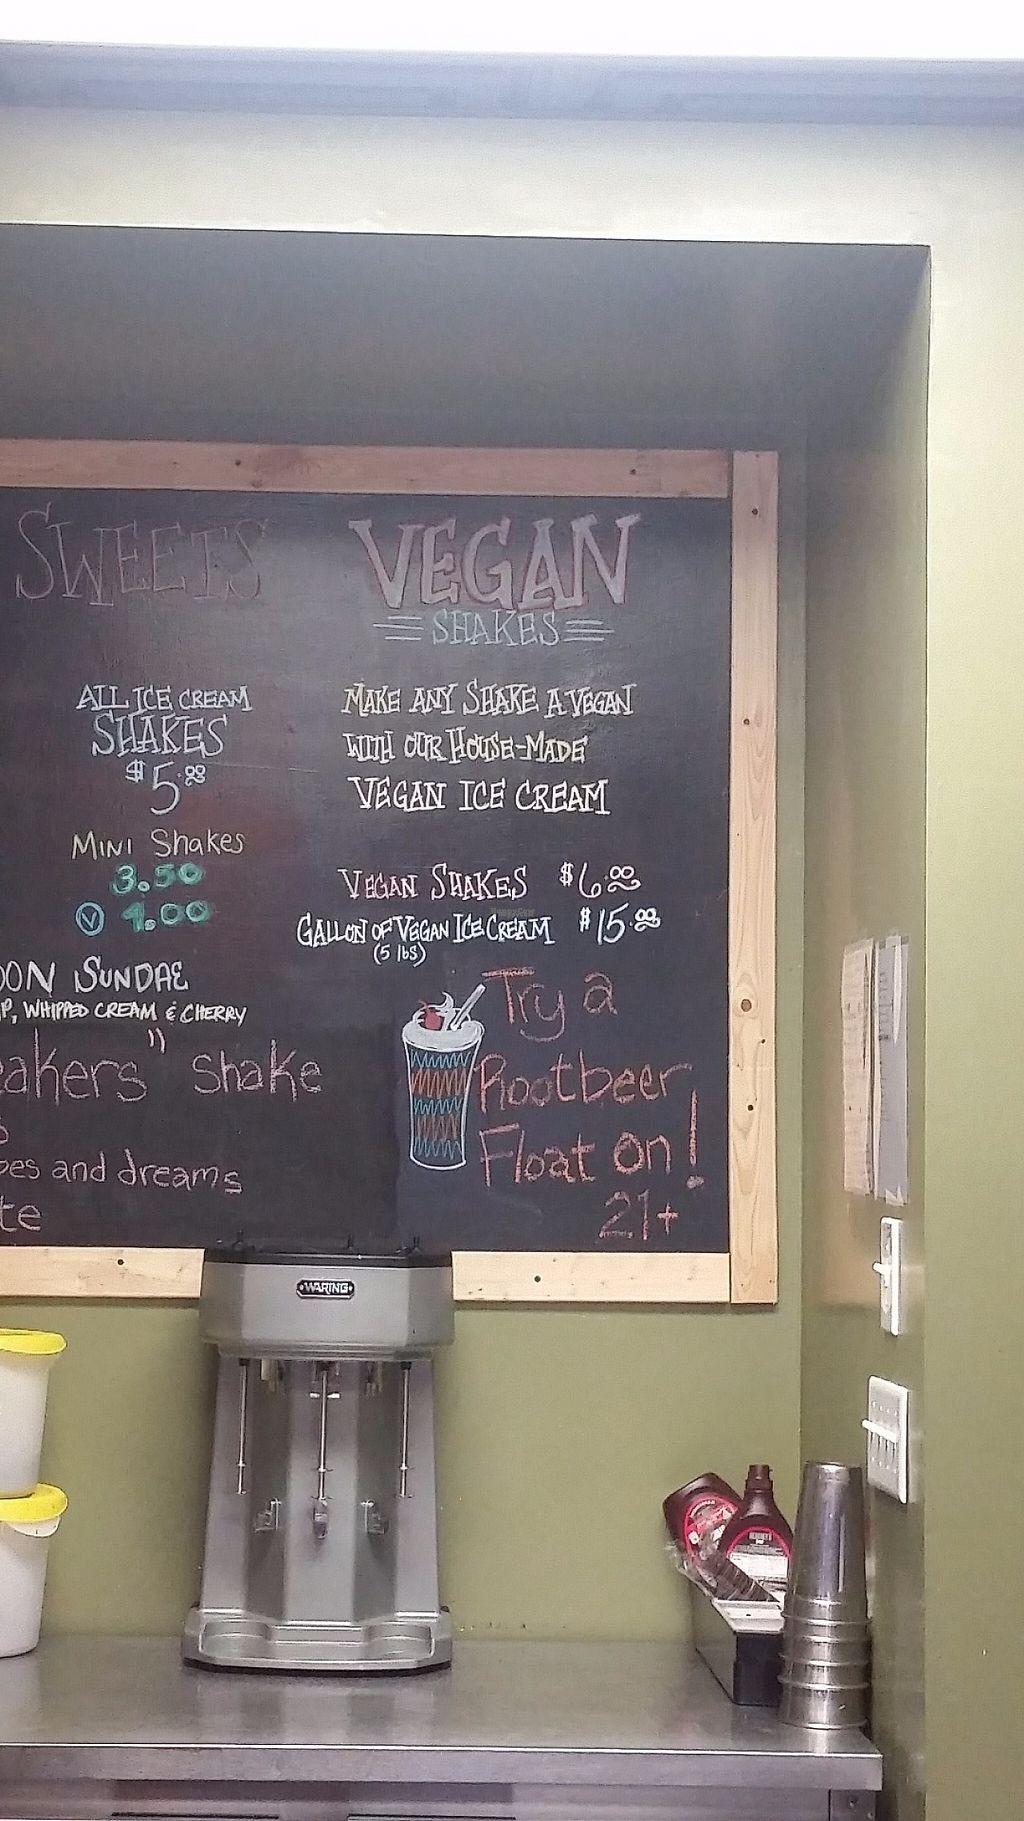 SWEETS
ALL ICE CREAM
SHAKES
$5.00
MINI Shakes
3.50
V 4.00
SUNDAE
WHIPPED CREAM & CHERRY
shake
and dreams
VEGAN
SHAKES
MAKE ANY SHAKE A VEGAN
WITH OUR HOUSE-MADE
VEGAN ICE CREAM
VEGAN SHAKES $6.00
GALLON OF VEGAN ICE CREAM $15.00
(5 lbs)
Try a
Rootbeer
Float on!
21+
WARING
HERSHEY'S